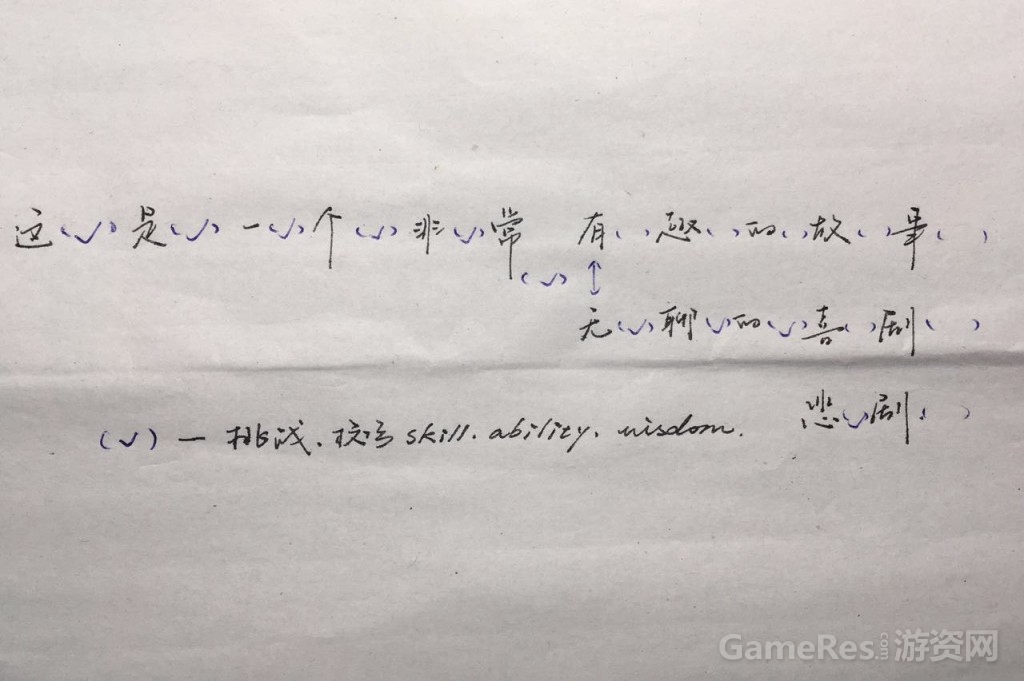 这(√)是(√)一(√)个(√)非(√)常 有( )趣( )的( )故( )事( )
(√)
无(√)聊(√)的(√)喜( )剧( )
悲(√)剧( )
(√) — 挑战、 skill. ability. wisdom.
GameRes.com游资网